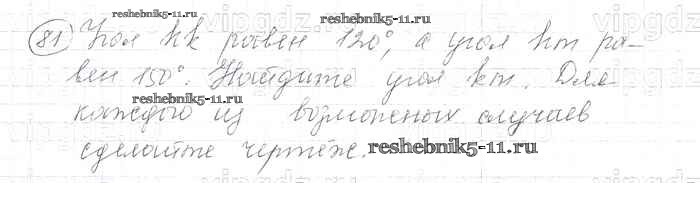 reshebnik5-11.ru
81) Угол hk равен 120°, а угол hm ра-
вен 150°. Найдите угол km. Для
reshebnik5-11.ru
каждого из возможных случаев
сделайте чертёж.
reshebnik5-11.ru